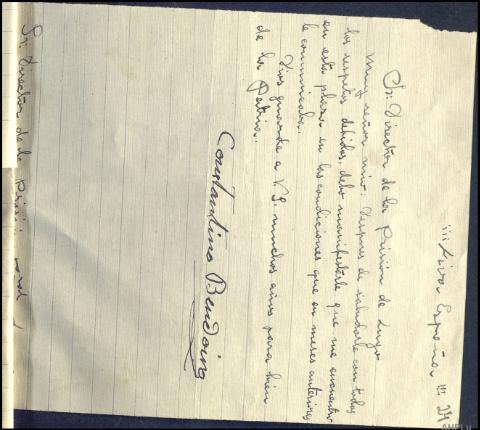 ¡¡¡Viva España!!! 34
Sr. Director de la Prision de Lugo
Muy señor mio: Despues de saludarle con todos
los respetos debidos, debo manifestarle que me encuentro
en esta plaza en las condiciones que en meses anteriores
le comunicaba.
Dios guarde a V.S. muchos años para bien
de la Patria.
Constantino
Sr. Director de la